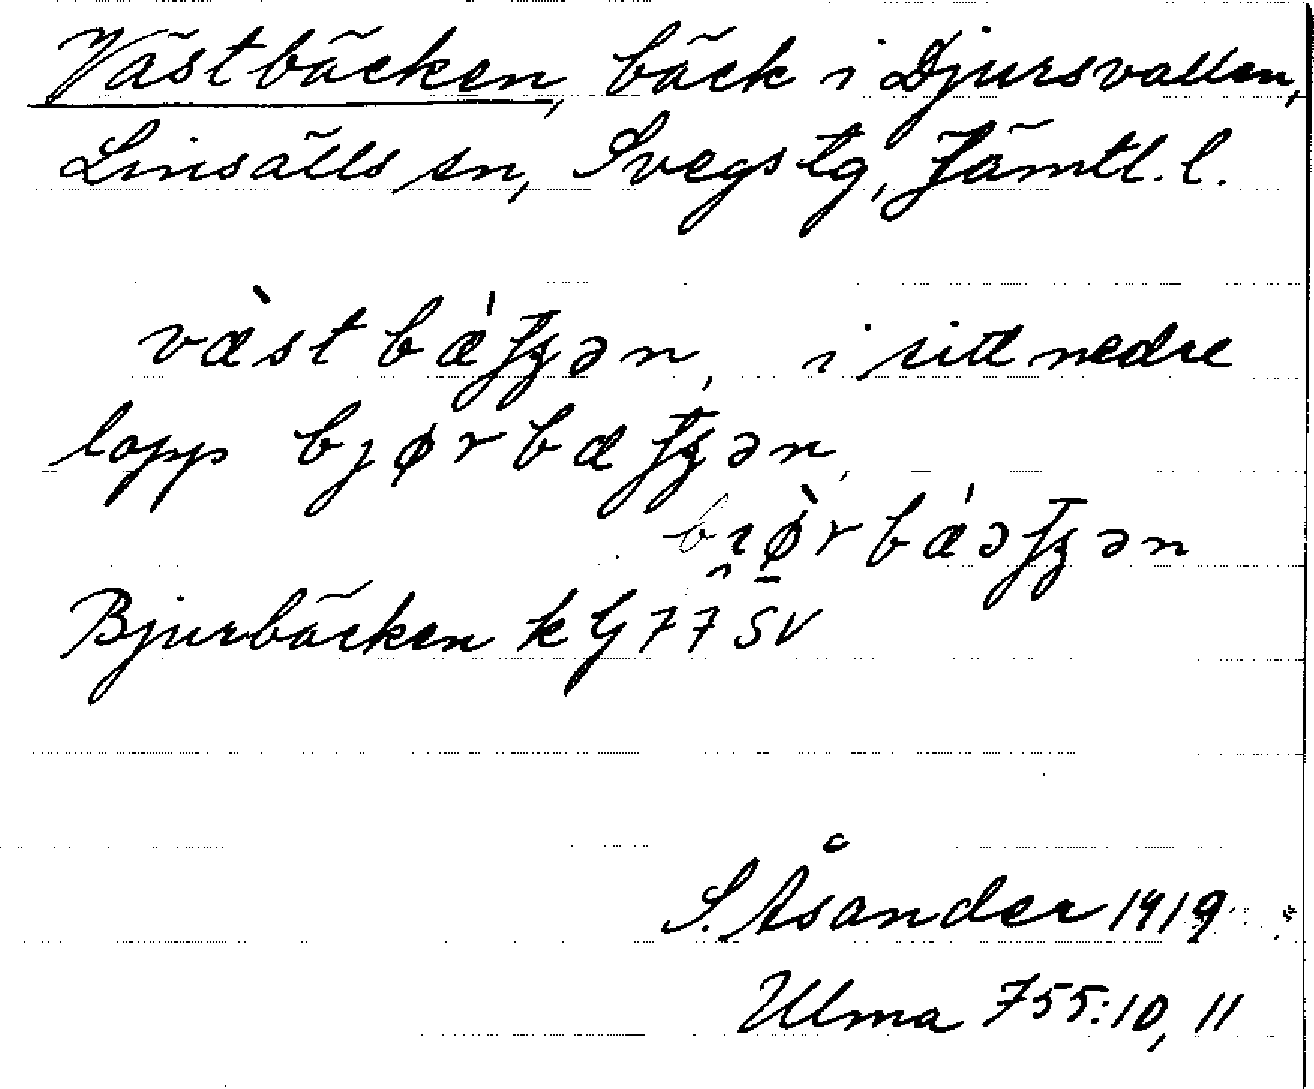 Västbäcken, bäck i Djursvallen,
Linsälls sn, Svegs tg, Jämtl. l.
væ̀st bǽʃʒən, i sitt nedre
lopp bjørbæʃʒən,
bi̯ø̱̀rbǽəʃʒən
Bjurbäcken k G 77 SV
S. Åsander 1919
Ulma 755:10, 11